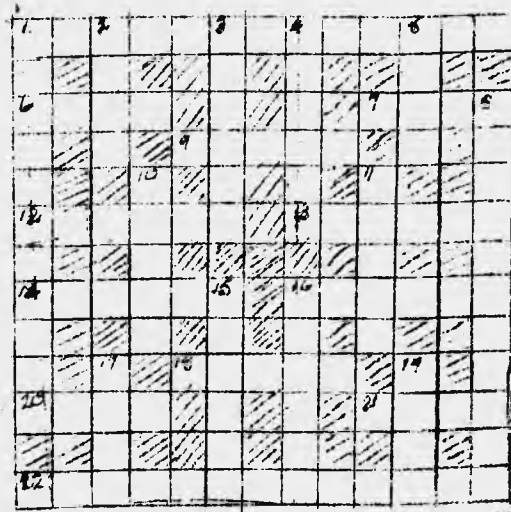 1 2 3 4 5
6 7 8
9
10 11
12 13
14 15 16
17 18 19
20 21
22